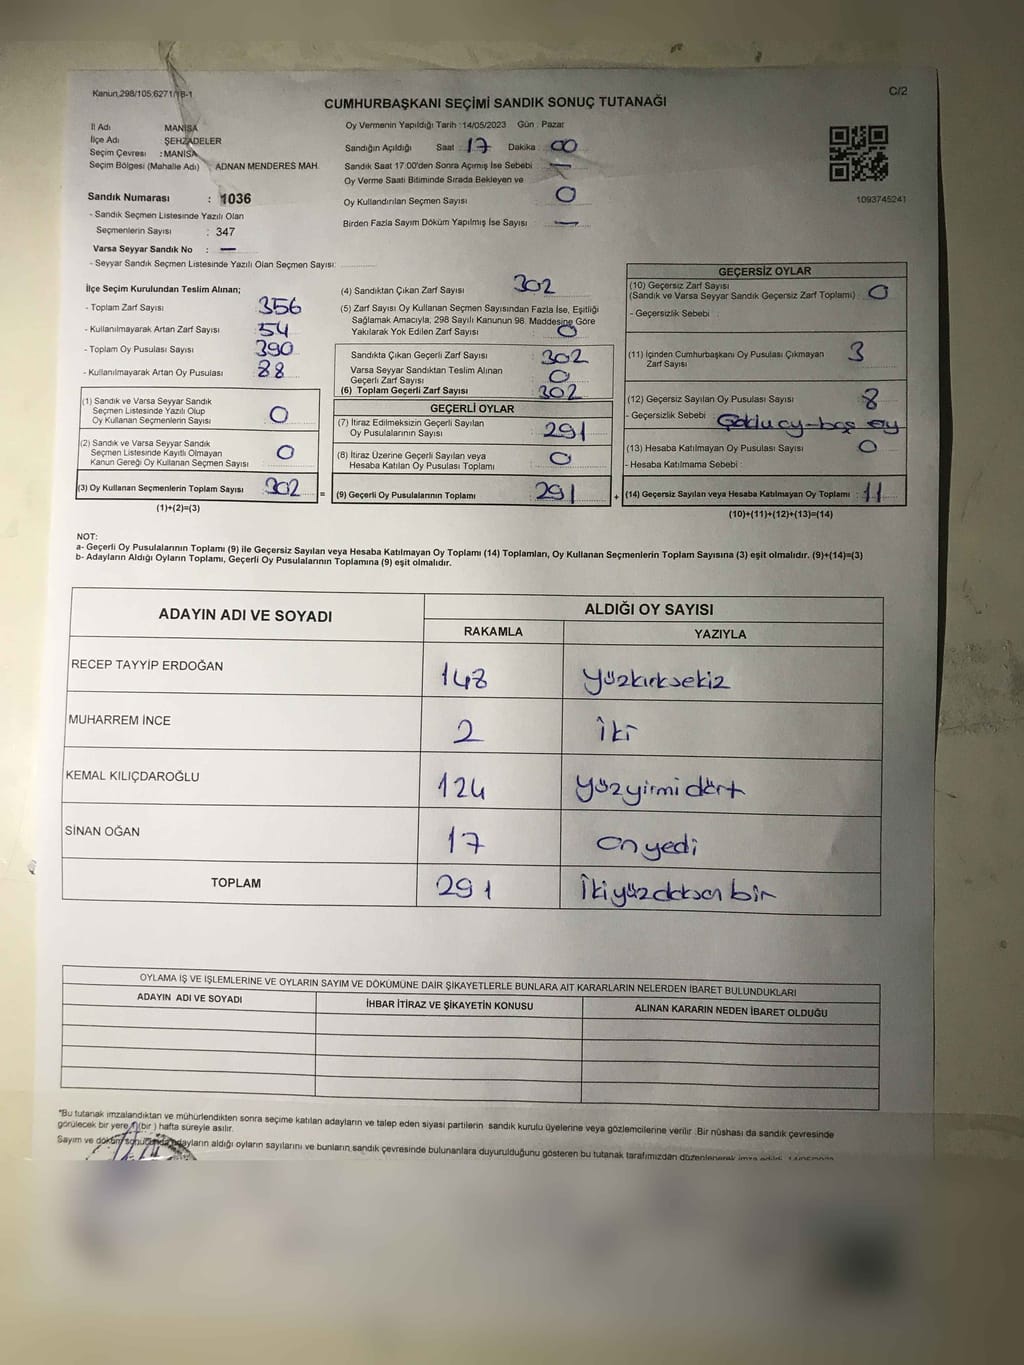 Kanun,298/105;6271/18-1
C/2
CUMHURBAŞKANI SEÇİMİ SANDIK SONUÇ TUTANAĞI
İl Adı MANİSA
İlçe Adı ŞEHZADELER
Seçim Çevresi : MANİSA
Seçim Bölgesi (Mahalle Adı) : ADNAN MENDERES MAH.
Oy Vermenin Yapıldığı Tarih :14/05/2023 Gün : Pazar
Sandığın Açıldığı Saat : 17 Dakika : 00
Sandık Saat 17:00'den Sonra Açımış İse Sebebi : —
Oy Verme Saati Bitiminde Sırada Bekleyen ve
Oy Kullandırılan Seçmen Sayısı : 0
Birden Fazla Sayım Döküm Yapılmış İse Sayısı : —
1093745241
Sandık Numarası : 1036
- Sandık Seçmen Listesinde Yazılı Olan
Seçmenlerin Sayısı : 347
Varsa Seyyar Sandık No : —
- Seyyar Sandık Seçmen Listesinde Yazılı Olan Seçmen Sayısı:
İlçe Seçim Kurulundan Teslim Alınan;
- Toplam Zarf Sayısı : 356
- Kullanılmayarak Artan Zarf Sayısı : 54
- Toplam Oy Pusulası Sayısı : 390
- Kullanılmayarak Artan Oy Pusulası : 88
(1) Sandık ve Varsa Seyyar Sandık
Seçmen Listesinde Yazılı Olup
Oy Kullanan Seçmenlerin Sayısı : 0
(2) Sandık ve Varsa Seyyar Sandık
Seçmen Listesinde Kayıtlı Olmayan
Kanun Gereği Oy Kullanan Seçmen Sayısı : 0
(3) Oy Kullanan Seçmenlerin Toplam Sayısı : 302
(1)+(2)=(3)
(4) Sandıktan Çıkan Zarf Sayısı : 302
(5) Zarf Sayısı Oy Kullanan Seçmen Sayısından Fazla İse, Eşitliği
Sağlamak Amacıyla, 298 Sayılı Kanunun 98. Maddesine Göre
Yakılarak Yok Edilen Zarf Sayısı : 0
Sandıkta Çıkan Geçerli Zarf Sayısı : 302
Varsa Seyyar Sandıktan Teslim Alınan
Geçerli Zarf Sayısı : 0
(6) Toplam Geçerli Zarf Sayısı : 302
GEÇERLİ OYLAR
(7) İtiraz Edilmeksizin Geçerli Sayılan
Oy Pusulalarının Sayısı : 291
(8) İtiraz Üzerine Geçerli Sayılan veya
Hesaba Katılan Oy Pusulası Toplamı : 0
= (9) Geçerli Oy Pusulalarının Toplamı : 291 +
GEÇERSİZ OYLAR
(10) Geçersiz Zarf Sayısı
(Sandık ve Varsa Seyyar Sandık Geçersiz Zarf Toplamı) : 0
- Geçersizlik Sebebi :
(11) İçinden Cumhurbaşkanı Oy Pusulası Çıkmayan
Zarf Sayısı : 3
(12) Geçersiz Sayılan Oy Pusulası Sayısı : 8
- Geçersizlik Sebebi : oy-boş oy
(13) Hesaba Katılmayan Oy Pusulası Sayısı : 0
- Hesaba Katılmama Sebebi :
(14) Geçersiz Sayılan veya Hesaba Katılmayan Oy Toplamı : 11
(10)+(11)+(12)+(13)=(14)
NOT:
a- Geçerli Oy Pusulalarının Toplamı (9) ile Geçersiz Sayılan veya Hesaba Katılmayan Oy Toplamı (14) Toplamları, Oy Kullanan Seçmenlerin Toplam Sayısına (3) eşit olmalıdır. (9)+(14)=(3)
b- Adayların Aldığı Oyların Toplamı, Geçerli Oy Pusulalarının Toplamına (9) eşit olmalıdır.
ADAYIN ADI VE SOYADI ALDIĞI OY SAYISI
RAKAMLA YAZIYLA
RECEP TAYYİP ERDOĞAN 148 yüzkırksekiz
MUHARREM İNCE 2 iki
KEMAL KILIÇDAROĞLU 124 yüzyirmidört
SİNAN OĞAN 17 onyedi
TOPLAM 291 ikiyüzdoksan bir
OYLAMA İŞ VE İŞLEMLERİNE VE OYLARIN SAYIM VE DÖKÜMÜNE DAİR ŞİKAYETLERLE BUNLARA AİT KARARLARIN NELERDEN İBARET BULUNDUKLARI
ADAYIN ADI VE SOYADI İHBAR İTİRAZ VE ŞİKAYETİN KONUSU ALINAN KARARIN NEDEN İBARET OLDUĞU
*Bu tutanak imzalandıktan ve mühürlendikten sonra seçime katılan adayların ve talep eden siyasi partilerin sandık kurulu üyelerine veya gözlemcilerine verilir .Bir nüshası da sandık çevresinde
görülecek bir yere 1(bir ) hafta süreyle asılır.
Sayım ve döküm sonucunda adayların aldığı oyların sayılarını ve bunların sandık çevresinde bulunanlara duyurulduğunu gösteren bu tutanak tarafımızdan düzenlenerek imza edildi.